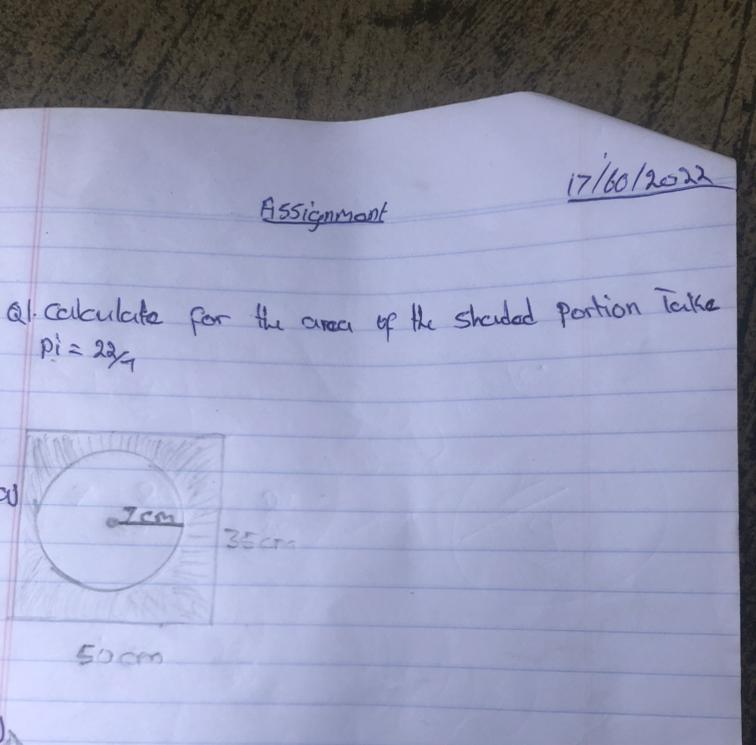 17/60/2022
Assignment
Q1. Calculate for the area of the shaded portion Take
pi = 22/7
a)
7cm
35cm
50cm